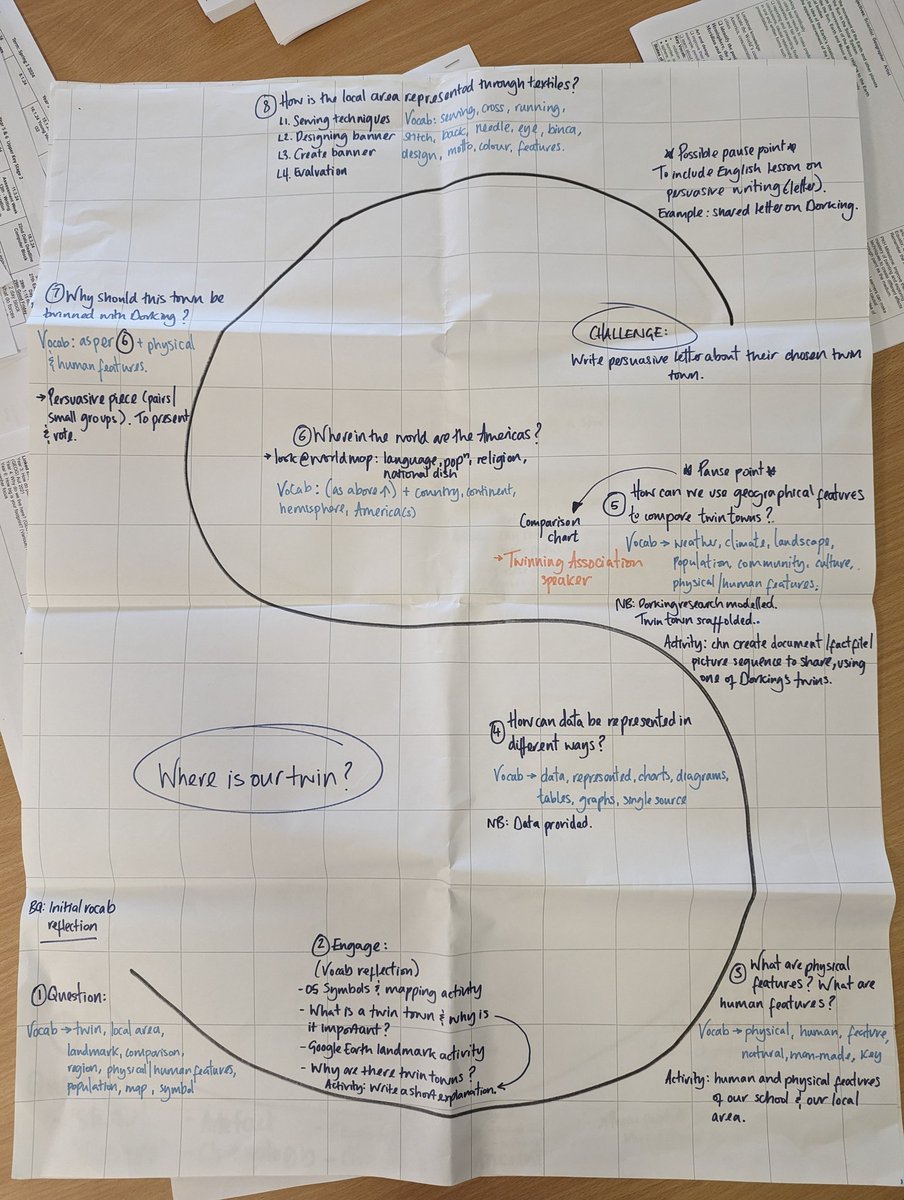 ⑧ How is the local area represented through textiles?
L1. Sewing techniques
L2. Designing banner
L3. Create banner
L4. Evaluation
Vocab: sewing, cross, running,
stitch, back, needle, eye, binca,
design, motto, colour, features.
* Possible pause point *
To include English lesson on
persuasive writing (letter).
Example: shared letter on Dorking.
⑦ Why should this town be
twinned with Dorking?
Vocab: as per ⑥ + physical
& human features.
→ Persuasive piece (pairs/
small groups). To present
& vote.
CHALLENGE:
Write persuasive letter about their chosen twin
town.
⑥ Where in the world are the Americas?
→ look @ world map: language, popⁿ, religion,
national dish
Vocab: (as above ↑) + country, continent,
hemisphere, America(s)
* Pause point *
⑤ How can we use geographical features
to compare twin towns?
Vocab → weather, climate, landscape,
population, community, culture,
physical/human features.
Comparison
chart
→ Twinning Association
speaker
NB: Dorking research modelled.
Twin town scaffolded..
Activity: chn create document/factfile/
picture sequence to share, using
one of Dorking's twins.
④ How can data be represented in
different ways?
Vocab → data, represented, charts, diagrams,
tables, graphs, single source
NB: Data provided.
Where is our twin?
BQ: Initial vocab
reflection
① Question:
Vocab → twin, local area,
landmark, comparison,
region, physical/human features,
population, map, symbol
② Engage:
(Vocab reflection)
- OS Symbols & mapping activity
- What is a twin town & why is
it important?
- Google Earth landmark activity
- Why are there twin towns?
Activity: Write a short explanation.
③ What are physical
features? What are
human features?
Vocab → physical, human, feature,
natural, man-made, key
Activity: human and physical features
of our school & our local
area.